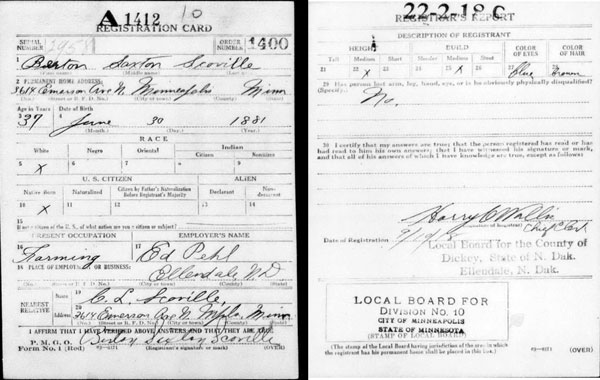 A 1412 10
REGISTRATION CARD
SERIAL NUMBER
ORDER NUMBER 1400
1 Burton Saxton Scoville
(First name) (Middle name) (Last name)
2 PERMANENT HOME ADDRESS:
3614 Emerson Ave N. Minneapolis Minn
(No.) (Street or R. F. D. No.) (City or town) (County) (State)
Age in Years Date of Birth
3 37 4 June 30 1881
(Month.) (Day.) (Year.)
RACE
White Negro Oriental Indian
Citizen Noncitizen
5 X 6 7 8 9
U. S. CITIZEN ALIEN
Native Born Naturalized Citizen by Father's Naturalization Before Registrant's Majority Declarant Non-declarant
10 X 11 12 13 14
15
If not a citizen of the U. S., of what nation are you a citizen or subject?
PRESENT OCCUPATION EMPLOYER'S NAME
16 Farming 17 Ed Pehl
18 PLACE OF EMPLOYMENT OR BUSINESS:
Ellendale, N D
(No.) (Street or R. F. D. No.) (City or town) (County) (State)
NEAREST RELATIVE
Name 19 C. L. Scoville,
Address 20 3614 Emerson Ave N. Mpls, Minn
(No.) (Street or R. F. D. No.) (City or town) (County) (State)
I AFFIRM THAT I HAVE VERIFIED ABOVE ANSWERS AND THAT THEY ARE TRUE
P. M. G. O.
Form No. 1 (Red) 03—6171 Burton Saxton Scoville
(Registrant's signature or mark) (OVER)
22-2-18 C
REGISTRAR'S REPORT
DESCRIPTION OF REGISTRANT
HEIGHT BUILD COLOR OF EYES COLOR OF HAIR
Tall Medium Short Slender Medium Stout
21 22 X 23 24 25 X 26 27 Blue 28 Brown
29 Has person lost arm, leg, hand, eye, or is he obviously physically disqualified?
(Specify.) No.
30 I certify that my answers are true; that the person registered has read or has
had read to him his own answers; that I have witnessed his signature or mark,
and that all of his answers of which I have knowledge are true, except as follows:
Harry O Wallis
(Signature of Registrar)
Date of Registration
Local Board for the County of
Dickey, State of N. Dak.
Ellendale, N. Dak.
LOCAL BOARD FOR
DIVISION No. 10
CITY OF MINNEAPOLIS
STATE OF MINNESOTA
(STAMP OF LOCAL BOARD)
(The stamp of the Local Board having jurisdiction of the area in which
the registrant has his permanent home shall be placed in this box.)
03—6171 (OVER)